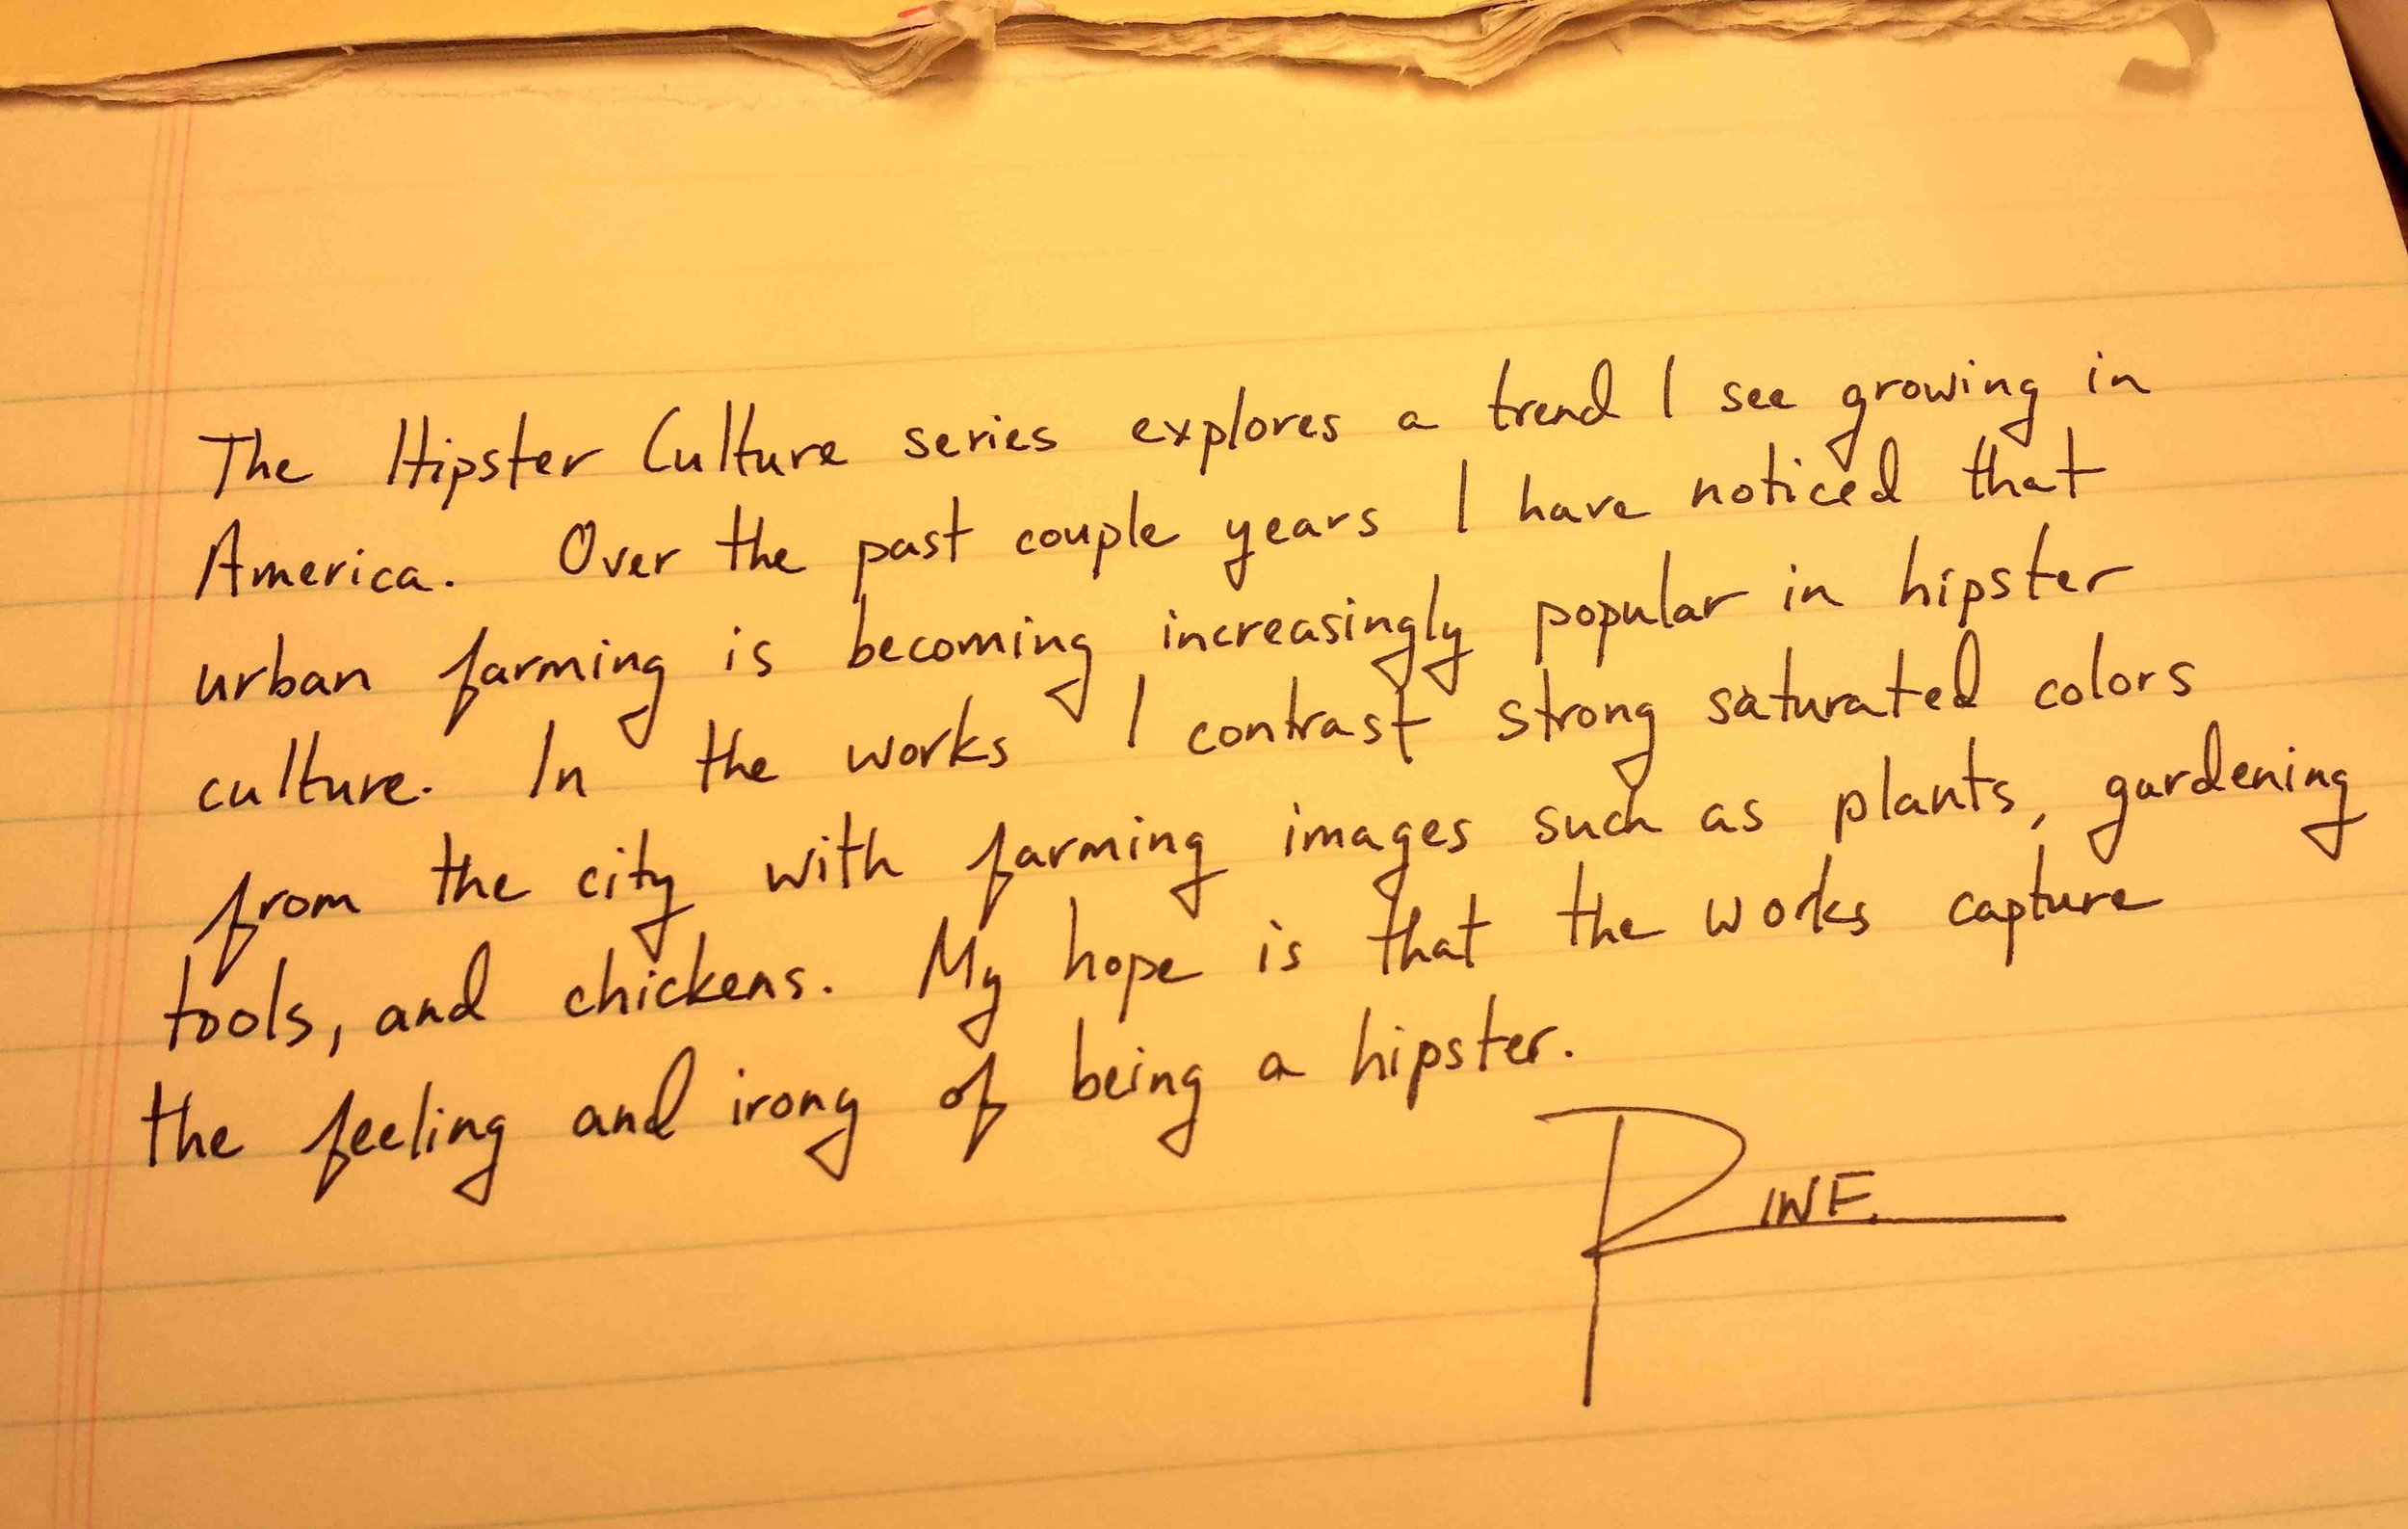 The Hipster Culture series explores a trend I see growing in
America. Over the past couple years I have noticed that
urban farming is becoming increasingly popular in hipster
culture. In the works I contrast strong saturated colors
from the city with farming images such as plants, gardening
tools, and chickens. My hope is that the works capture
the feeling and irony of being a hipster.
RINE